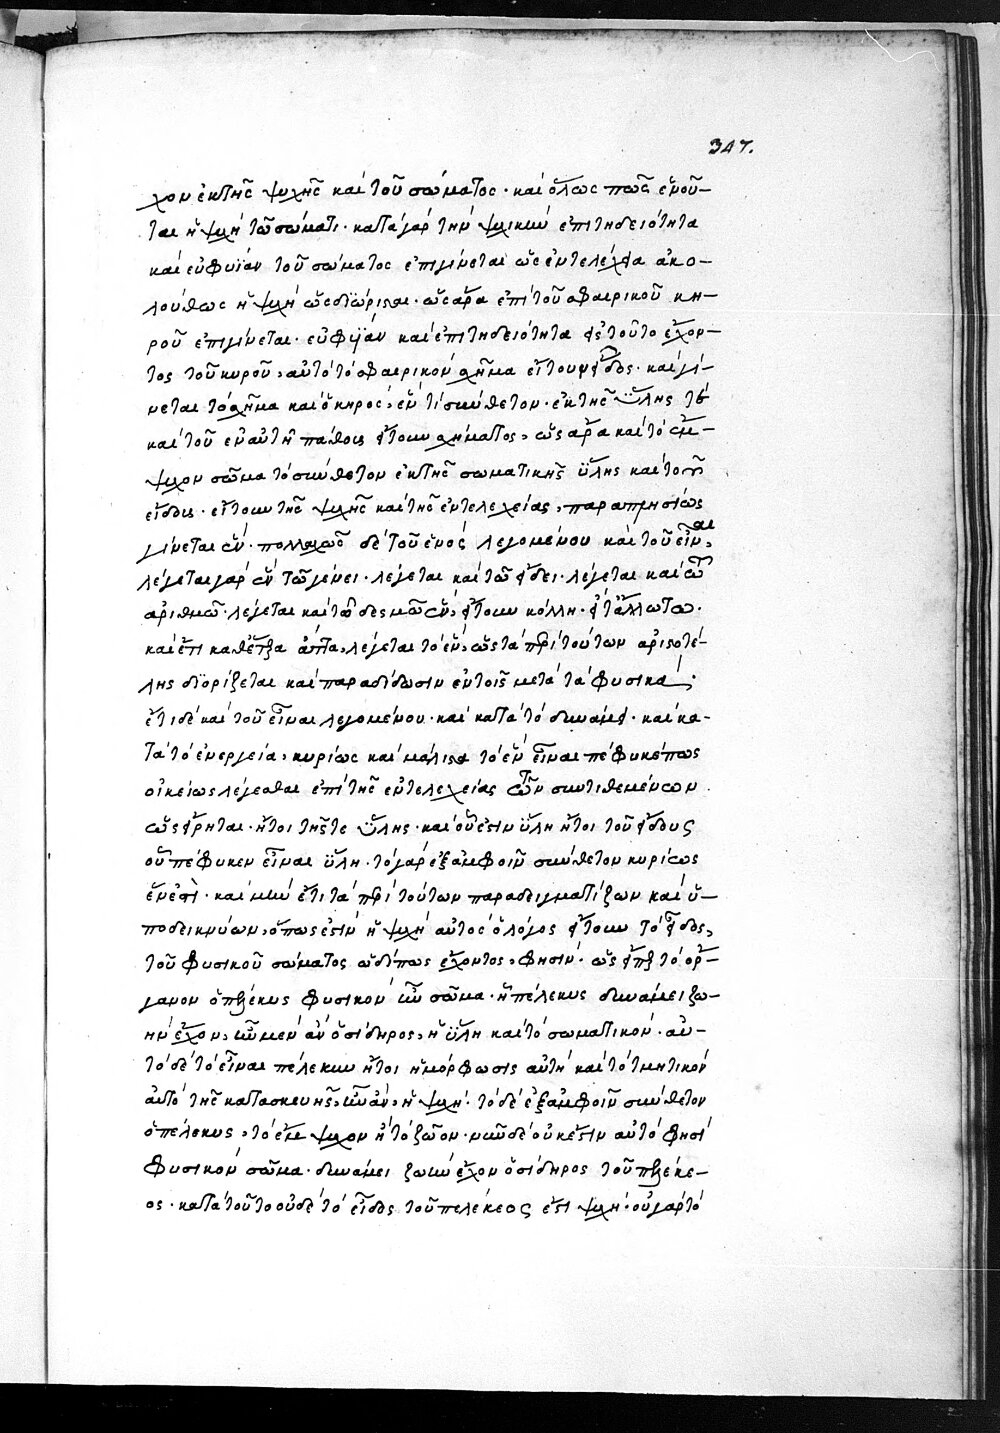 347.
χον ἐκ τῆς ψυχῆς καὶ τοῦ σώματος· καὶ ὅλως πῶς ἑνοῦ-
ται ἡ ψυχὴ τῶ σώματι· κατὰ γὰρ τὴν ψυχικὴν ἐπιτηδειότητα
καὶ εὐφυΐαν τοῦ σώματος ἐπιγίνεται ὡς ἐντελέχεια ἀκο-
λούθως ἡ ψυχὴ ὡς διώρισται· ὡς ἄρα ἐπὶ τοῦ σφαιρικοῦ κη-
ροῦ ἐπιγίνεται· εὐφυΐαν καὶ ἐπιτηδειότητα εἰς τοῦτο ἔχον-
τος τοῦ κηροῦ, αὐτὸ τὸ σφαιρικὸν σχῆμα εἴτουν εἶδος· καὶ γί-
νεται τὸ σχῆμα καὶ ὁ κηρὸς, ἕν τι σύνθετον· ἐκ τῆς ὕλης τε
καὶ τοῦ ἐν αὐτῆ πάθους ἤτουν σχήματος, ὡς ἄρα καὶ τὸ ἔμ-
ψυχον σῶμα τὸ σύνθετον ἐκ τῆς σωματικῆς ὕλης καὶ τοῦ
εἴδους· εἴτουν τῆς ψυχῆς καὶ τῆς ἐντελεχείας, παραπλησίως
γίνεται ἕν· πολλαχῶς δὲ τοῦ ἑνὸς λεγομένου καὶ τοῦ εἶναι,
λέγεται γὰρ ἓν τῶ γένει· λέγεται καὶ τῶ εἴδει· λέγεται καὶ ἐν
ἀριθμῶ· λέγεται καὶ τῶ δεσμῶ ἓν, εἴτουν κόλλη· ἢ ἄλλω τω·
καὶ ἔτι καθ' ἕτερα ἄττα, λέγεται τὸ ἓν, ὡς τὰ περὶ τούτων ἀριστοτέ-
λης διορίζεται καὶ παραδίδωσιν ἐν τοῖς μετὰ τὰ φυσικά·
ἔτι δὲ καὶ τοῦ εἶναι λεγομένου· καὶ κατὰ τὸ δυνάμει· καὶ κα-
τὰ τὸ ἐνεργεία, κυρίως καὶ μάλιστα τὸ ἓν εἶναι πέφυκέ πως
οἰκείως λέγεσθαι ἐπὶ τῆς ἐντελεχείας τῶν συντιθεμένων
ὡς εἴρηται· ἤτοι τῆς τε ὕλης· καὶ οὗ ἐστὶν ὕλη ἤτοι τοῦ εἴδους
οὗ πέφυκεν εἶναι ὕλη· τὸ γὰρ ἐξ ἀμφοῖν σύνθετον κυρίως
ἕν ἐστι· καὶ μὴν ἔτι τὰ περὶ τούτων παραδειγματίζων καὶ ὑ-
ποδεικνύων, ὅπως ἐστὶν ἡ ψυχὴ αὐτὸς ὁ λόγος εἴτουν τὸ εἶδος,
τοῦ φυσικοῦ σώματος ὡδίπως ἔχοντος, φησίν· ὡς εἴπερ τὸ ὄρ-
γανον ὁ πέλεκυς φυσικὸν ἦν σῶμα· ἢ πέλεκυς δυνάμει ζω-
ὴν ἔχον, ἦν μὲν ἂν ὁ σίδηρος, ἡ ὕλη καὶ τὸ σωματικόν· αὐ-
τὸ δὲ τὸ εἶναι πέλεκυν ἤτοι ἡ μόρφωσις αὐτὴ καὶ τὸ τμητικὸν
ἀπὸ τῆς κατασκευῆς, ἦν ἂν, ἡ ψυχή· τὸ δὲ ἐξ ἀμφοῖν σύνθετον
ὁ πέλεκυς, τὸ ἔμψυχον ἢ τὸ ζῶον· νῦν δὲ οὐκ ἔστιν αὐτὸ φησὶ
φυσικὸν σῶμα· δυνάμει ζωὴν ἔχον ὁ σίδηρος τοῦ πελέκε-
ος· κατὰ τοῦτο οὐδὲ τὸ εἶδος τοῦ πελέκεος ἐστὶ ψυχή· οὐ γὰρ τὸ